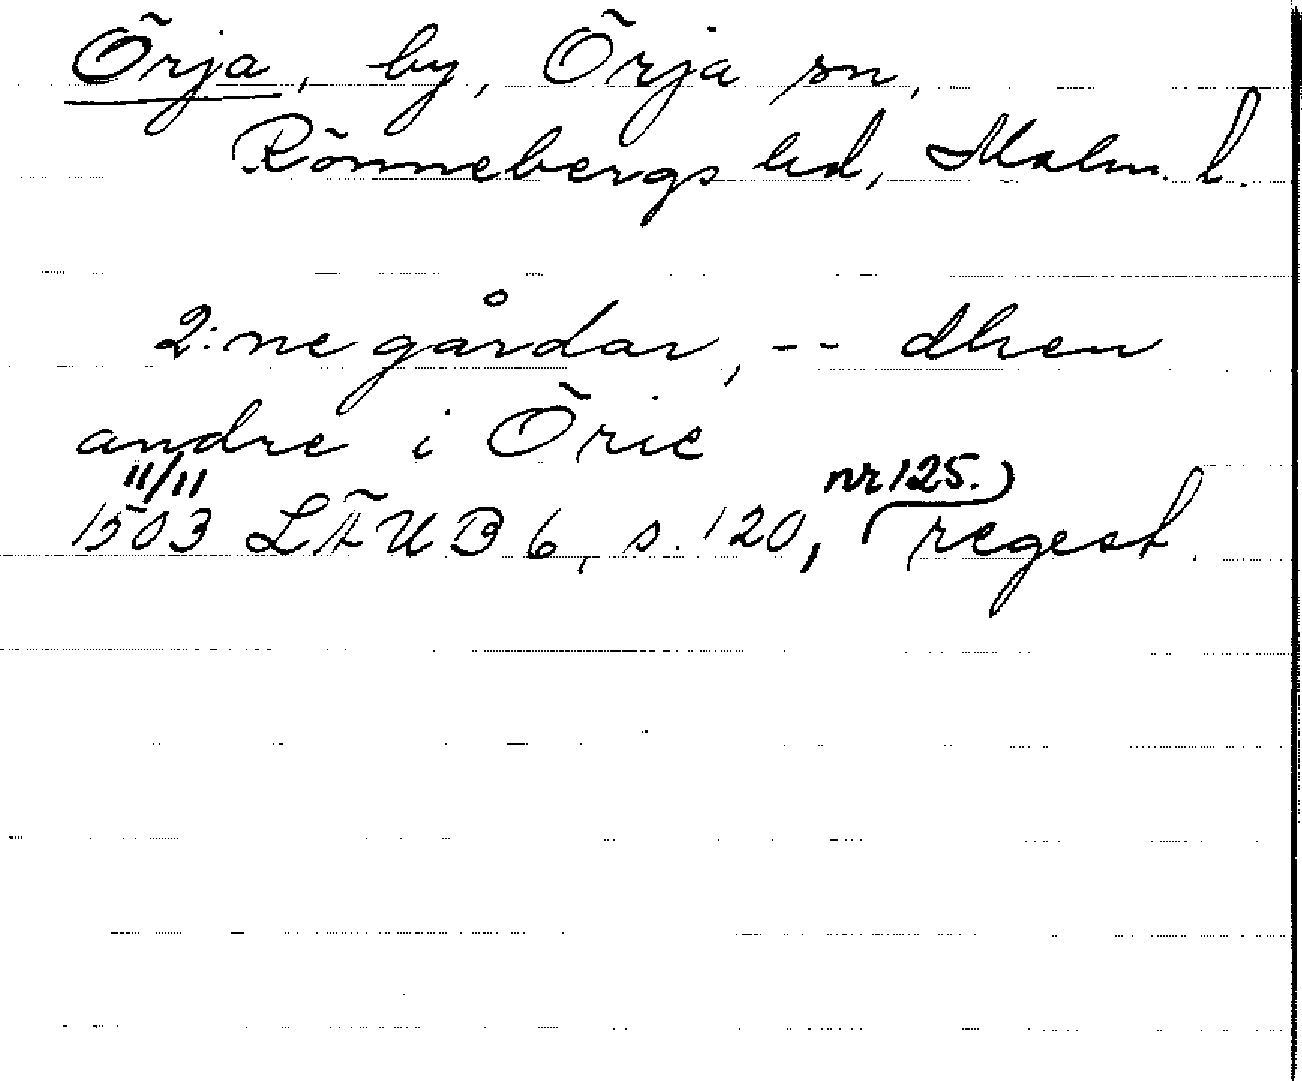 Örja, by, Örja sn,
Rönnebergs hd, Malm. l.
2:ne gårdar, -- dhen
andre i Örie
11/11 nr 125.)
1503 LÄUB 6, s. 120, regest.